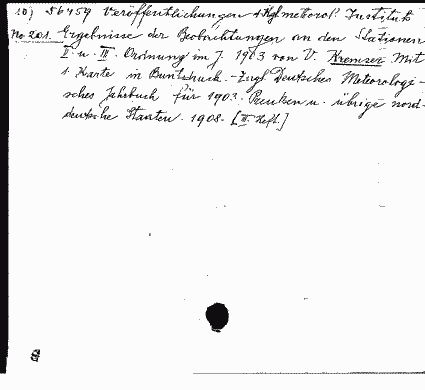 10) 56459 Veröffentlichungen d. Kgl. meteorol. Instituts
No 201. Ergebnisse der Beobachtungen an den Stationen
II. u. III. Ordnung im J. 1903 von V. Kremser. Mit
1. Karte in Buntdruck. - Zugl. Deutsches Meteorologi-
sches Jahrbuch für 1903. Preußen u. übrige nord-
deutsche Staaten. 1908. [II. Heft.]